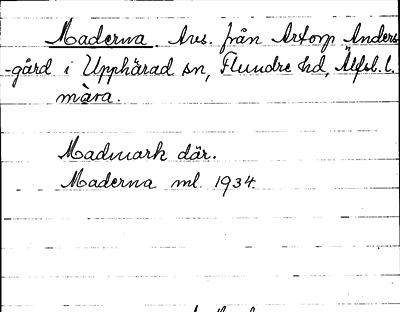 Maderna. Avs. från Artorp Anders-
-gård i Upphärad sn, Flundre hd, Älfsb. l.
màra.
Madmark där.
Maderna ml. 1934.